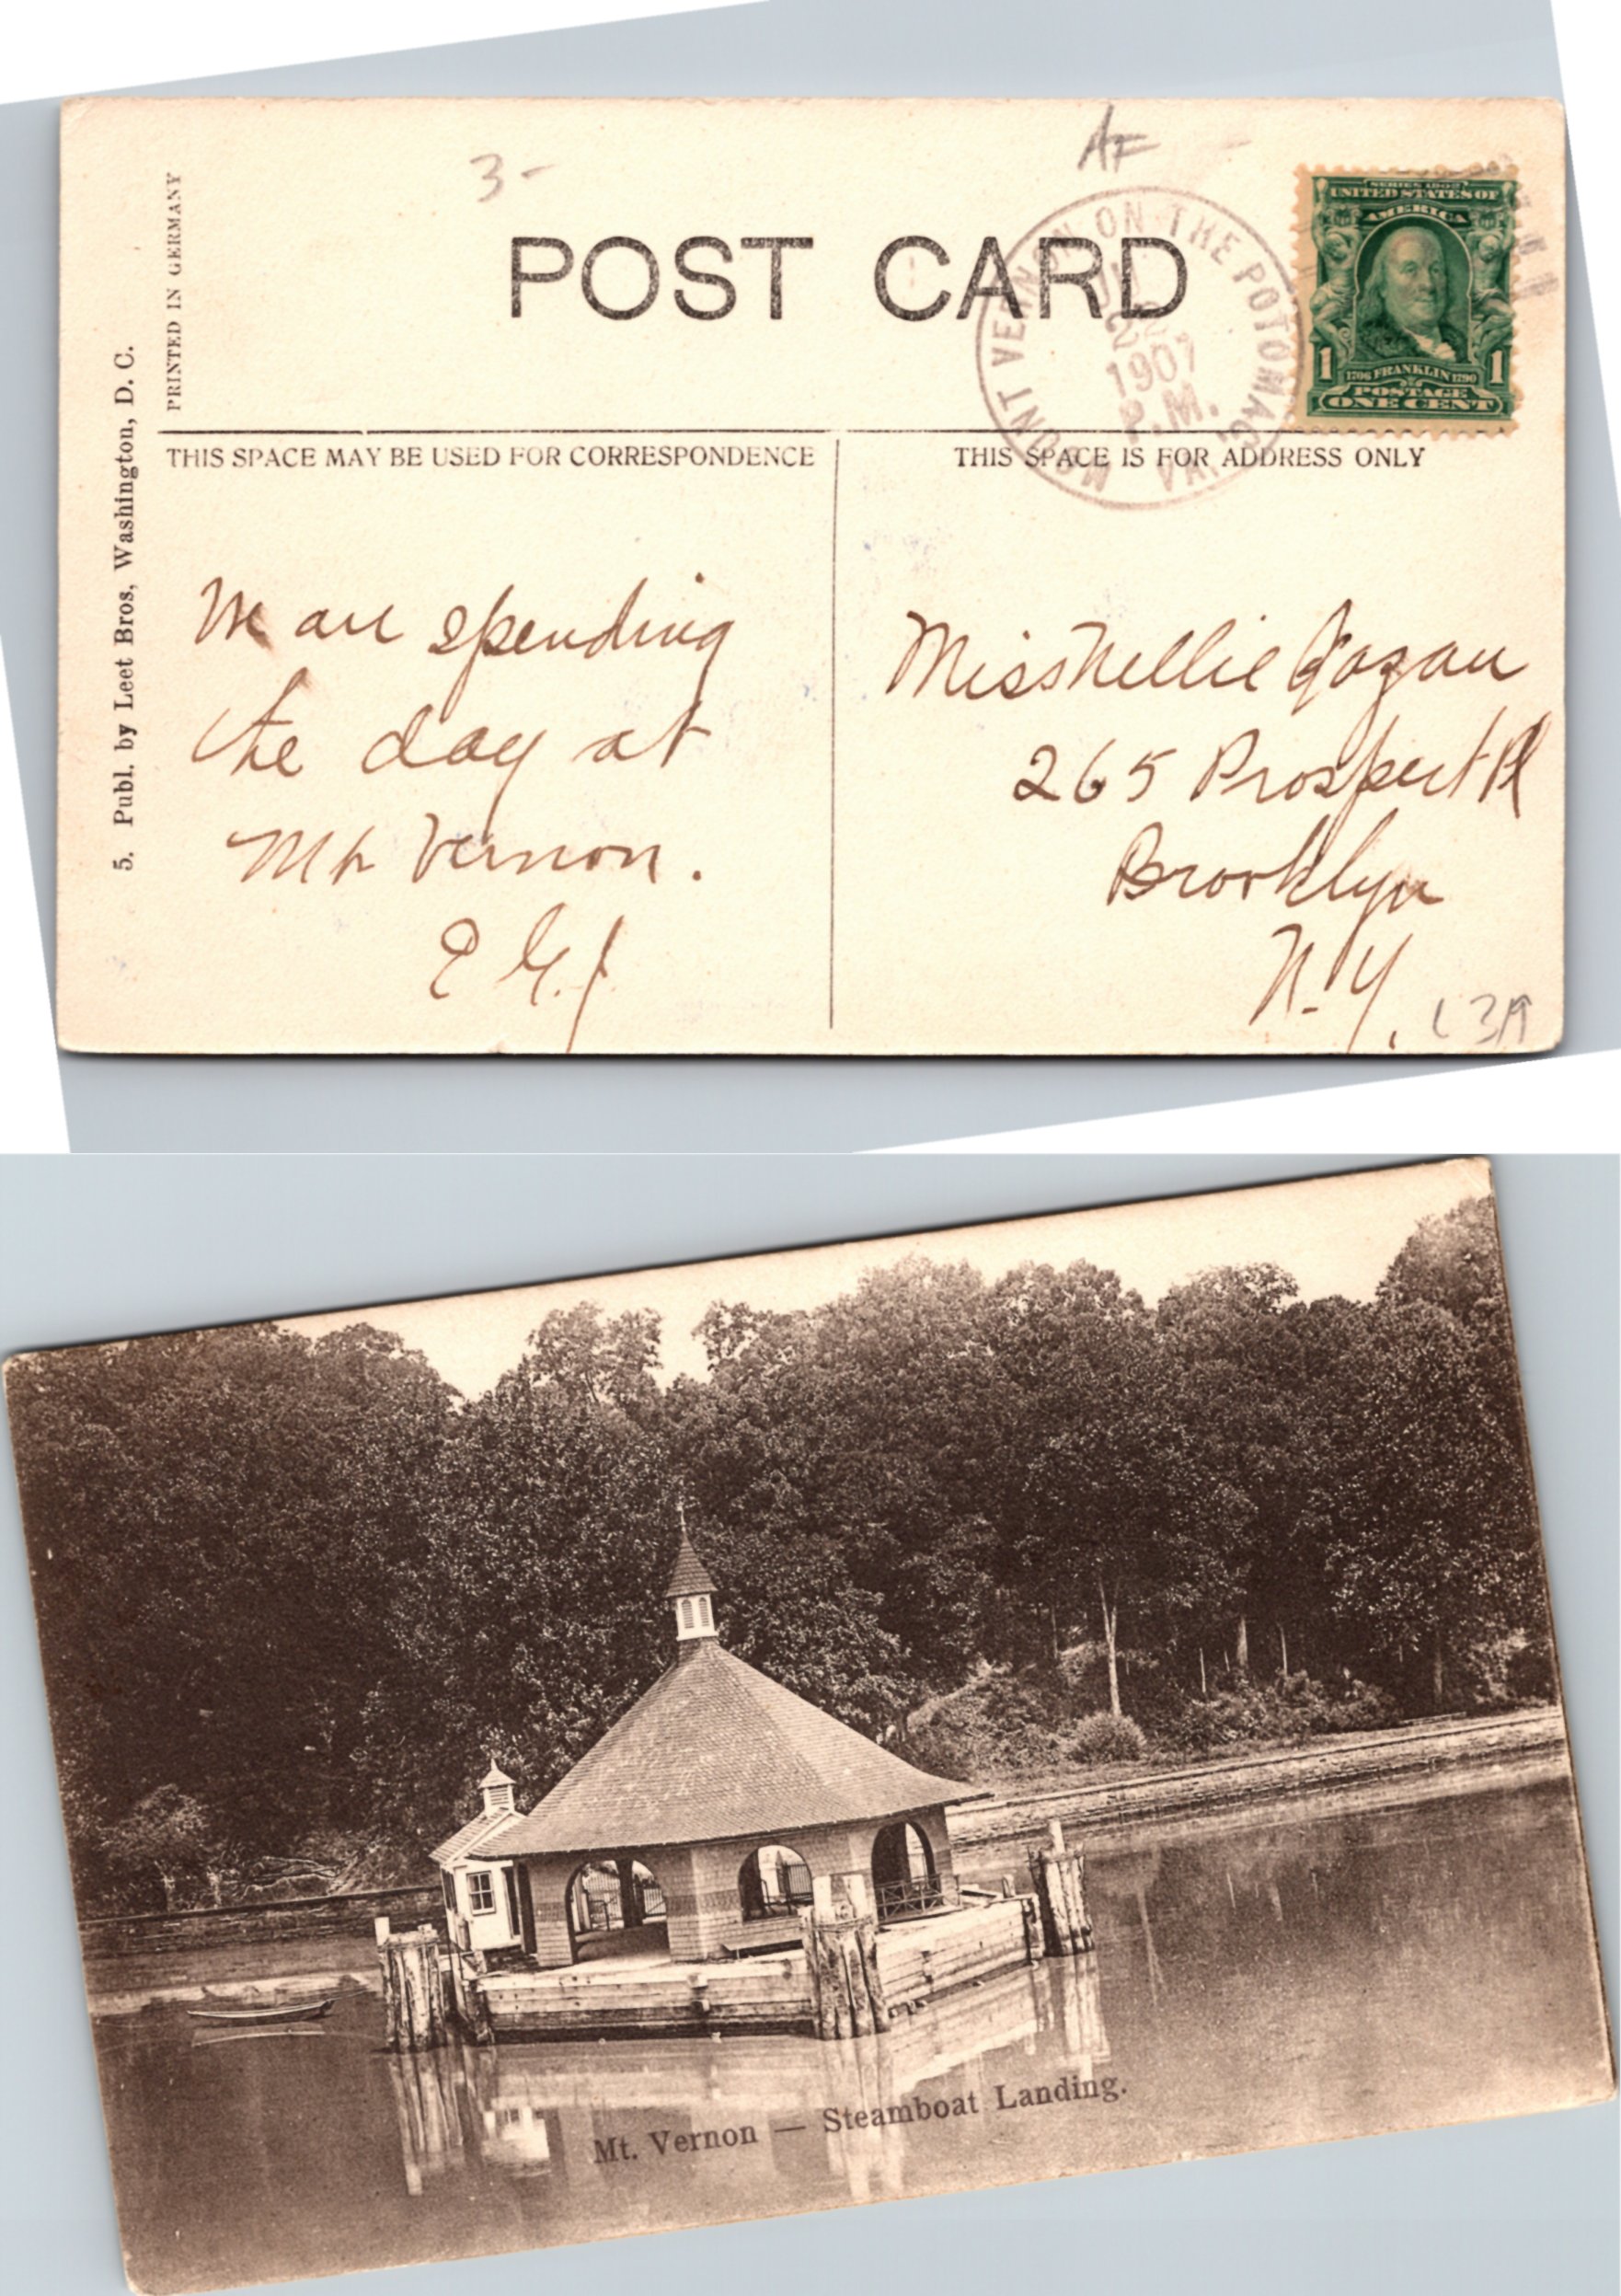 3-
AF
PRINTED IN GERMANY
5. Publ. by Leet Bros, Washington, D. C.
POST CARD
MOUNT VERNON ON THE POTOMAC, VA.
22
1907
P.M.
SERIES 1902
UNITED STATES OF
AMERICA
1 1706 FRANKLIN 1790 1
POSTAGE
ONE CENT
THIS SPACE MAY BE USED FOR CORRESPONDENCE
THIS SPACE IS FOR ADDRESS ONLY
We are spending
the day at
Mt Vernon.
Miss Nellie
265 Prospect Pl
Brooklyn
N.Y.
Mt. Vernon — Steamboat Landing.